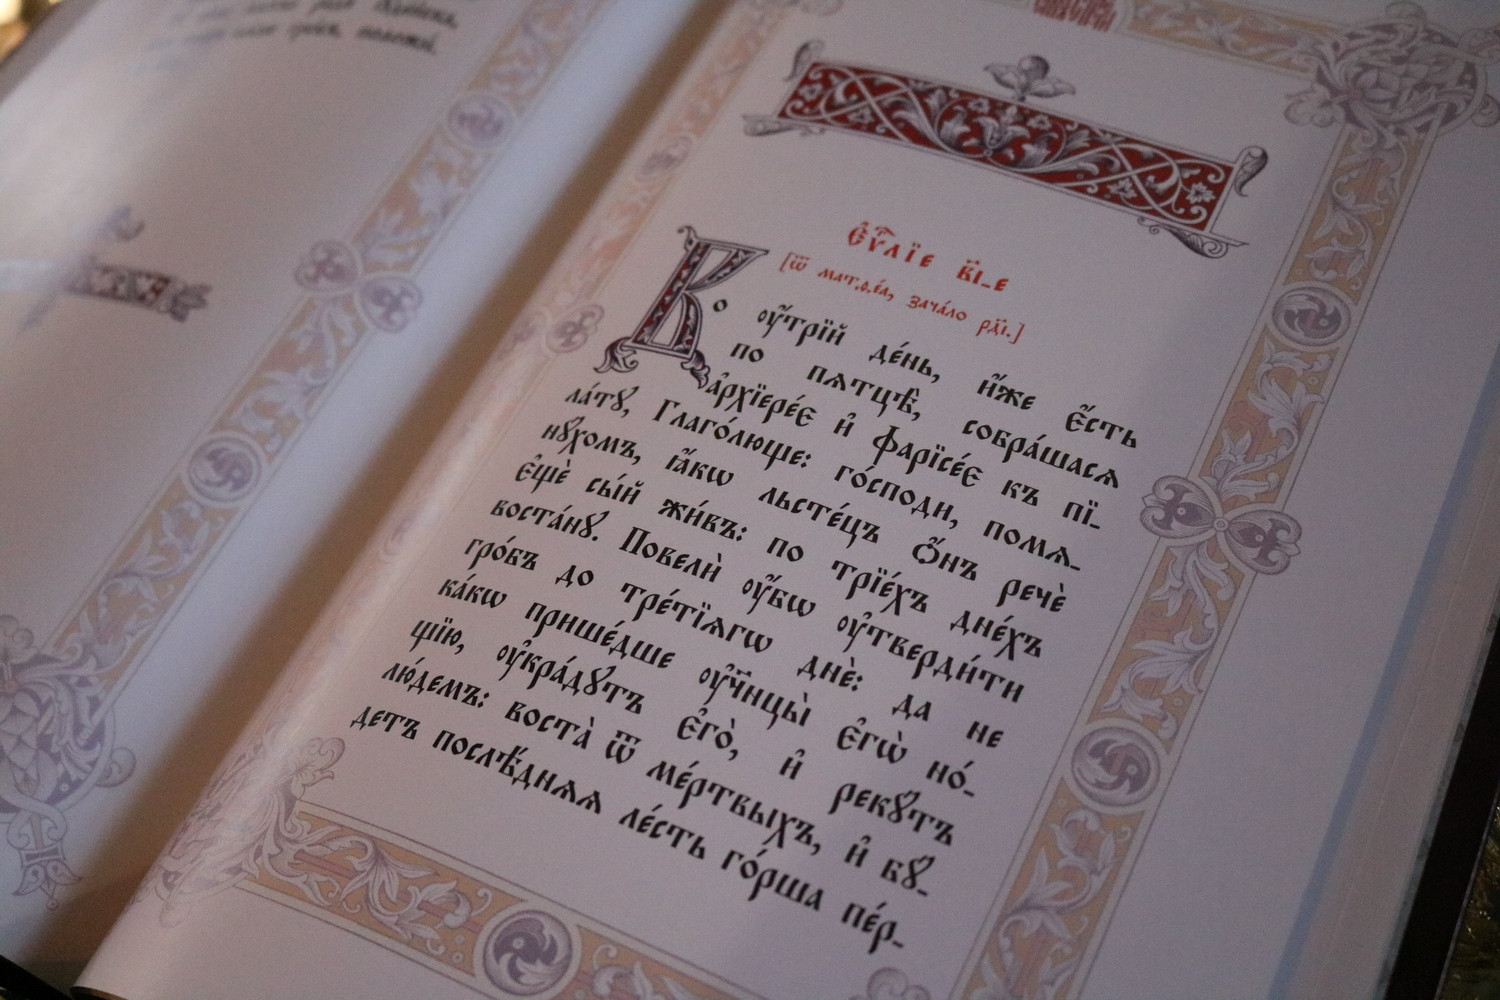 Є҆ѵⷢ҇лїе в҃і_е
[Ѿ матѳе́а, зача́ло рд҃і.]
Во ᲂу҆́трїй де́нь, и҆́же є҆́сть
по пѧтцѣ̀, собра́шасѧ
а҆рхїере́є и҆ фарїсе́є къ пї_
ла́тꙋ, Глаго́люще: го́споди, помѧ_
нꙋ́хомъ, ꙗ҆́кѡ льсте́цъ ѻ҆́нъ речѐ
є҆щѐ сы́й жи́въ: по трїе́хъ дне́хъ
воста́нꙋ. Повелѝ ᲂу҆́бѡ ᲂу҆тверди́ти
гро́бъ до тре́тїѧгѡ днѐ: да не
ка́кѡ прише́дше ᲂу҆чн҃цы̀ є҆гѡ̀ но́_
щїю, ᲂу҆кра́дꙋтъ є҆го̀, и҆ рекꙋ́тъ
лю́демъ: воста̀ ѿ ме́ртвыхъ, и҆ бꙋ́_
детъ послѣ́днѧѧ ле́сть го́рша пе́р_